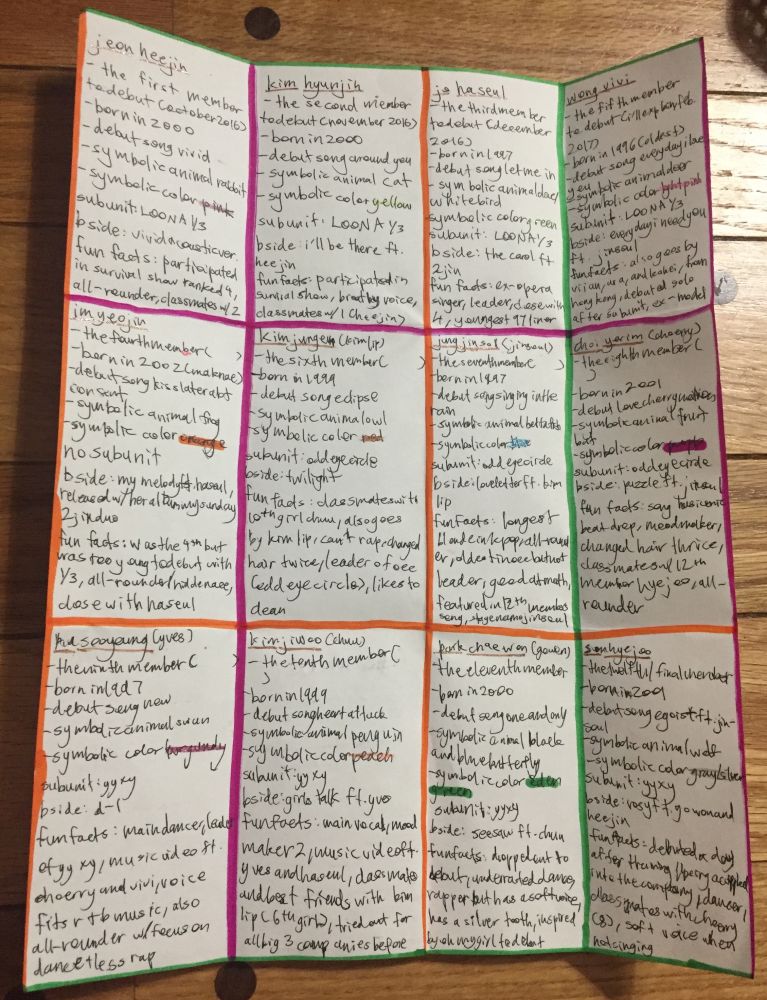 jeon heejin
- the first member
to debut (october 2016)
- born in 2000
- debut song vivid
- symbolic animal rabbit
- symbolic color pink
subunit: LOONA 1/3
bside: vivid acoustic ver.
fun facts: participated
in survival show ranked 4,
all-rounder, classmates w/ 2
kim hyunjin
- the second member
to debut (november 2016)
- born in 2000
- debut song around you
- symbolic animal cat
- symbolic color yellow
subunit: LOONA 1/3
bside: i'll be there ft.
heejin
fun facts: participated in
survival show, breathy voice,
classmates w/ 1 (heejin)
jo haseul
- the third member
to debut (december
2016)
- born in 1997
- debut song let me in
- symbolic animal
white bird
symbolic color green
subunit: LOONA 1/3
bside: the carol ft
2jin
fun facts: ex-opera
singer, leader, close with
4, youngest 97 liner
wong vivi
- the fifth member
to debut ( feb.
2017)
- born in 1996 (oldest)
- debut song everyday i love
you
- symbolic animal deer
- symbolic color light pink
subunit: LOONA 1/3
bside: everyday i need you
ft. jinsoul
fun facts: also goes by
vivian, and kahei, from
hong kong, debuted solo
after subunit, ex-model
im yeojin
- the fourth member ( )
- born in 2002 (maknae)
- debut song kiss later
- symbolic animal frog
- symbolic color orange
no subunit
bside: my melody ft. haseul,
released w/ her
2jin duo
fun facts: was the 4th but
was too young to debut with
1/3, all-rounder/
close with haseul
kim jungeun (kim lip)
- the sixth member ( )
- born in 1999
- debut song eclipse
- symbolic animal owl
- symbolic color red
subunit: odd eye circle
bside: twilight
fun facts: classmates with
10th girl chuu, also goes
by kim lip, can't rap, changed
hair twice, leader of oec
(odd eye circle), likes to
clean
jung jinsol (jinsoul)
- the seventh member ( )
- born in 1997
- debut song singing in the
rain
- symbolic animal betta fish
- symbolic color blue
subunit: odd eye circle
bside: love letter ft. kim
lip
fun facts: longest
blonde in kpop, all-round
er, oldest in oec but not
leader, good at math,
featured in 12th members
song, stage name jinsoul
choi yerim (choerry)
- the eighth member (
)
- born in 2001
- debut love cherry motion
- symbolic animal fruit
bat
- symbolic color purple
subunit: odd eye circle
bside: puzzle ft. jinsoul
fun facts: song has iconic
beat drop, moodmaker,
changed hair thrice,
classmates w/ 12th
member hyejoo, all-
rounder
ha sooyoung (yves)
- the ninth member ( )
- born in 1997
- debut song new
- symbolic animal swan
- symbolic color burgundy
subunit: yyxy
bside: d-1
fun facts: main dancer, leader
of yyxy, music video ft.
choerry and vivi, voice
fits r+b music, also
all-rounder w/ focus on
dance + less rap
kim jiwoo (chuu)
- the tenth member (
)
- born in 1999
- debut song heart attack
- symbolic animal penguin
- symbolic color peach
subunit: yyxy
bside: girls talk ft. yves
fun facts: main vocal, mood
maker 2, music video ft.
yves and haseul, classmates
and best friends with kim
lip (6th girl), tried out for
all big 3 companies before
park chaewon (gowon)
- the eleventh member
- born in 2000
- debut song one and only
- symbolic animal black
and blue butterfly
- symbolic color eden
green
subunit: yyxy
bside: seesaw ft. chuu
fun facts: dropped out to
debut, underrated dance,
rapper but has a soft voice,
has a silver tooth, inspired
by oh my girl to debut
son hyejoo
- the twelfth/final member
- born in 2001
- debut song egoist ft. jin-
soul
- symbolic animal wolf
- symbolic color gray/silver
subunit: yyxy
bside: rosy ft. gowon and
heejin
fun facts: debuted a day
after training/being accepted
into the company, dancer,
classmates with choerry
(8), soft voice when
not singing